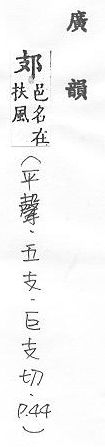 廣韻
郂邑名在
扶風
(平聲·五支·巨支切·P.44)